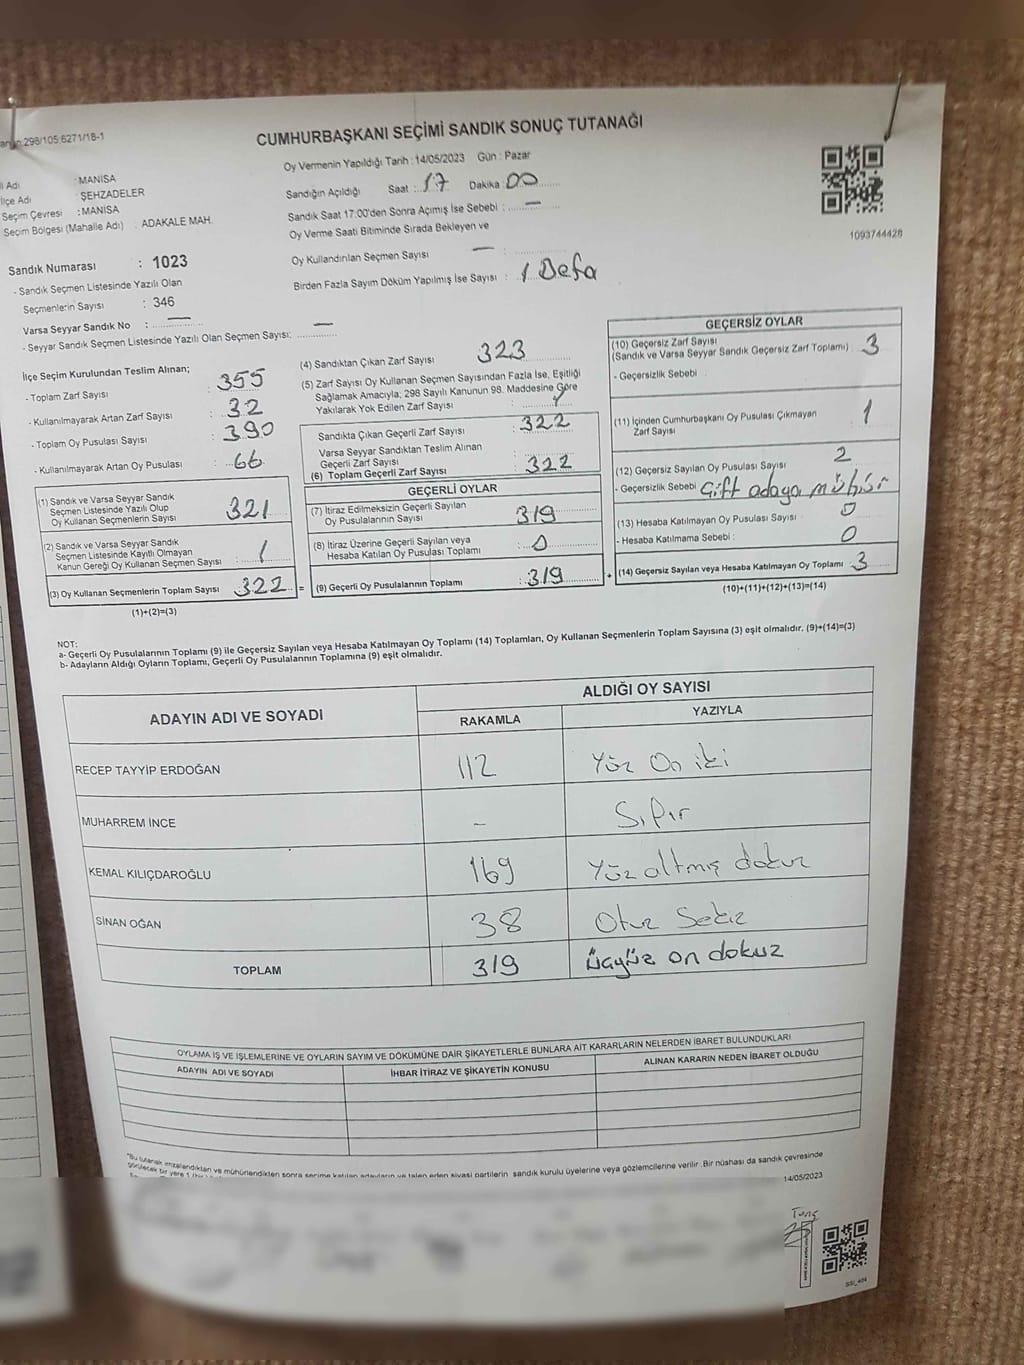 298/105:6271/18-1
CUMHURBAŞKANI SEÇİMİ SANDIK SONUÇ TUTANAĞI
Oy Vermenin Yapıldığı Tarih : 14/05/2023 Gün : Pazar
Adı : MANİSA
İlçe Adı : ŞEHZADELER
Seçim Çevresi : MANİSA
Seçim Bölgesi (Mahalle Adı) : ADAKALE MAH.
Sandığın Açıldığı Saat : 17 Dakika : 00
Sandık Saat 17:00'den Sonra Açımış İse Sebebi : —
Oy Verme Saati Bitiminde Sırada Bekleyen ve
Oy Kullandırılan Seçmen Sayısı — :
Birden Fazla Sayım Döküm Yapılmış İse Sayısı : 1 Defa
1093744428
Sandık Numarası : 1023
- Sandık Seçmen Listesinde Yazılı Olan
Seçmenlerin Sayısı : 346
Varsa Seyyar Sandık No : —
- Seyyar Sandık Seçmen Listesinde Yazılı Olan Seçmen Sayısı: —
İlçe Seçim Kurulundan Teslim Alınan;
- Toplam Zarf Sayısı : 355
- Kullanılmayarak Artan Zarf Sayısı : 32
- Toplam Oy Pusulası Sayısı : 390
- Kullanılmayarak Artan Oy Pusulası : 66
(1) Sandık ve Varsa Seyyar Sandık
Seçmen Listesinde Yazılı Olup
Oy Kullanan Seçmenlerin Sayısı 321
(2) Sandık ve Varsa Seyyar Sandık
Seçmen Listesinde Kayıtlı Olmayan
Kanun Gereği Oy Kullanan Seçmen Sayısı : 1
(3) Oy Kullanan Seçmenlerin Toplam Sayısı 322 =
(1)+(2)=(3)
(4) Sandıktan Çıkan Zarf Sayısı 323
(5) Zarf Sayısı Oy Kullanan Seçmen Sayısından Fazla İse, Eşitliği
Sağlamak Amacıyla; 298 Sayılı Kanunun 98. Maddesine Göre
Yakılarak Yok Edilen Zarf Sayısı : 1
Sandıkta Çıkan Geçerli Zarf Sayısı : 322
Varsa Seyyar Sandıktan Teslim Alınan
Geçerli Zarf Sayısı
(6) Toplam Geçerli Zarf Sayısı : 322
GEÇERLİ OYLAR
(7) İtiraz Edilmeksizin Geçerli Sayılan
Oy Pusulalarının Sayısı : 319
(8) İtiraz Üzerine Geçerli Sayılan veya
Hesaba Katılan Oy Pusulası Toplamı : 0
(9) Geçerli Oy Pusulalarının Toplamı : 319 +
GEÇERSİZ OYLAR
(10) Geçersiz Zarf Sayısı
(Sandık ve Varsa Seyyar Sandık Geçersiz Zarf Toplamı) : 3
- Geçersizlik Sebebi
(11) İçinden Cumhurbaşkanı Oy Pusulası Çıkmayan
Zarf Sayısı : 1
(12) Geçersiz Sayılan Oy Pusulası Sayısı : 2
- Geçersizlik Sebebi Çift adaya mühür
(13) Hesaba Katılmayan Oy Pusulası Sayısı : 0
- Hesaba Katılmama Sebebi : 0
(14) Geçersiz Sayılan veya Hesaba Katılmayan Oy Toplamı 3
(10)+(11)+(12)+(13)=(14)
NOT:
a- Geçerli Oy Pusulalarının Toplamı (9) ile Geçersiz Sayılan veya Hesaba Katılmayan Oy Toplamı (14) Toplamları, Oy Kullanan Seçmenlerin Toplam Sayısına (3) eşit olmalıdır. (9)+(14)=(3)
b- Adayların Aldığı Oyların Toplamı, Geçerli Oy Pusulalarının Toplamına (9) eşit olmalıdır.
ADAYIN ADI VE SOYADI
ALDIĞI OY SAYISI
RAKAMLA YAZIYLA
RECEP TAYYİP ERDOĞAN 112 Yüz On iki
MUHARREM İNCE - Sıfır
KEMAL KILIÇDAROĞLU 169 Yüz altmış dokuz
SİNAN OĞAN 38 Otuz Sekiz
TOPLAM 319 üçyüz on dokuz
OYLAMA İŞ VE İŞLEMLERİNE VE OYLARIN SAYIM VE DÖKÜMÜNE DAİR ŞİKAYETLERLE BUNLARA AİT KARARLARIN NELERDEN İBARET BULUNDUKLARI
ADAYIN ADI VE SOYADI İHBAR İTİRAZ VE ŞİKAYETİN KONUSU ALINAN KARARIN NEDEN İBARET OLDUĞU
*Bu tutanak imzalandıktan ve mühürlendikten sonra seçime katılan adayların ve talep eden siyasi partilerin sandık kurulu üyelerine veya gözlemcilerine verilir. Bir nüshası da sandık çevresinde
görülecek bir yere
14/05/2023
Tunç